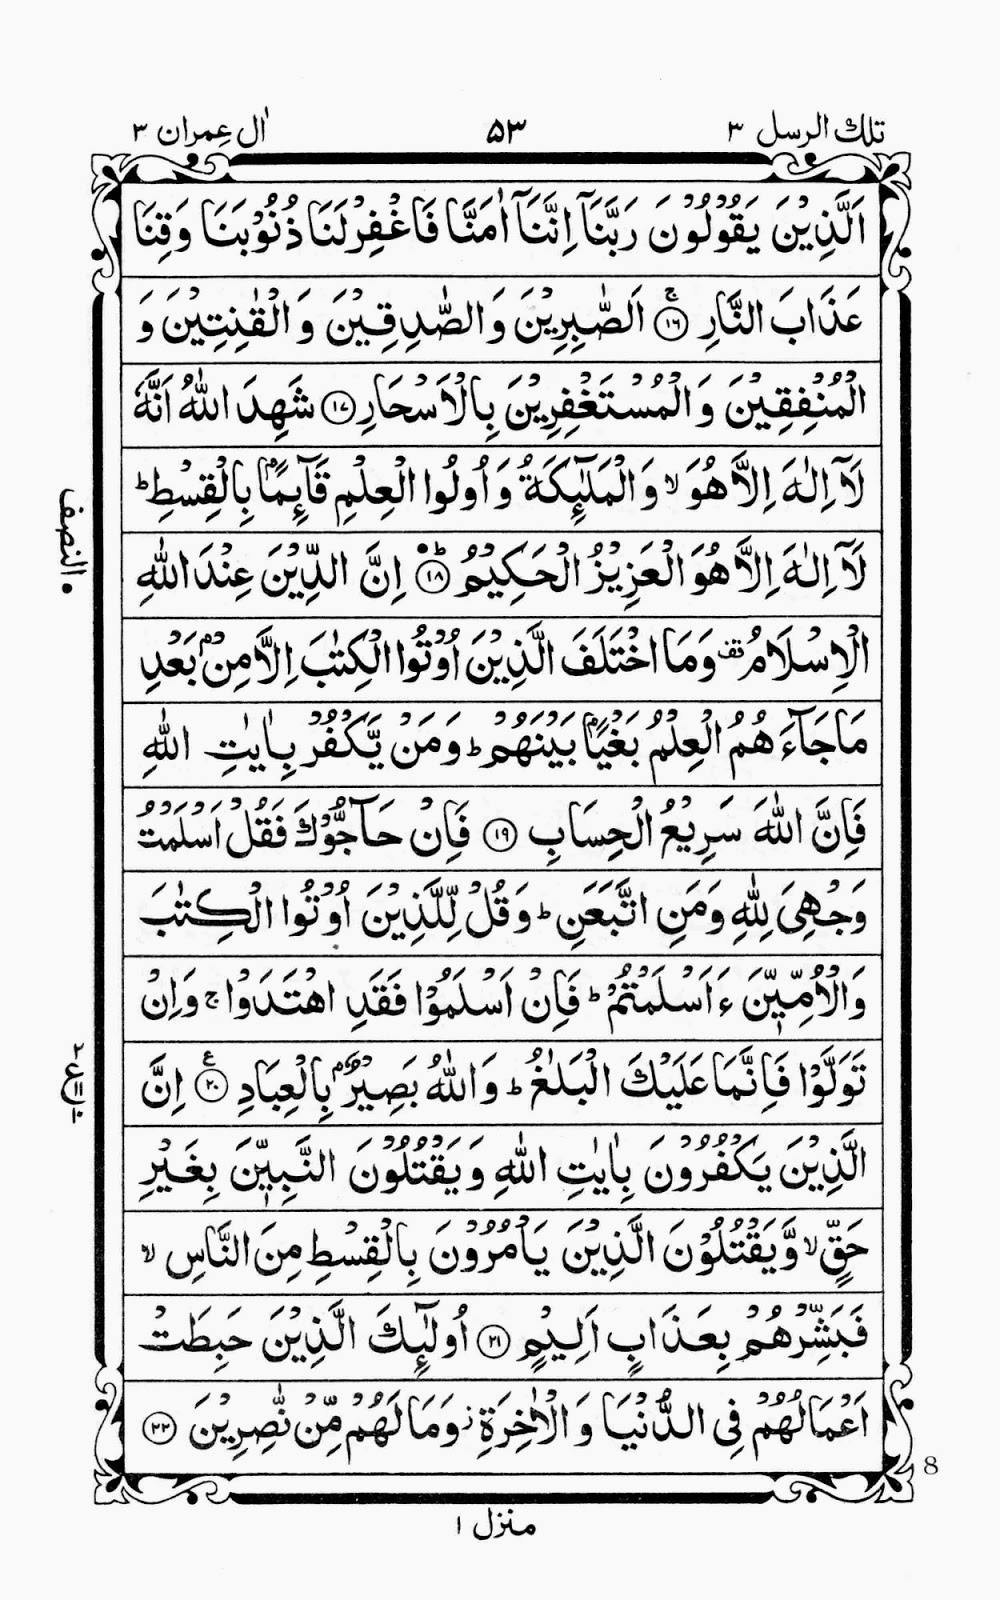 تلك الرسل ٣ ۵٣ اٰل عِمرٰان ٣
اَلَّذِیْنَ یَقُوْلُوْنَ رَبَّنَاۤ اِنَّنَاۤ اٰمَنَّا فَاغْفِرْ لَنَا ذُنُوْبَنَا وَ قِنَا
عَذَابَ النَّارِ ۚ﴿۱۶﴾ اَلصّٰبِرِیْنَ وَ الصّٰدِقِیْنَ وَ الْقٰنِتِیْنَ وَ
الْمُنْفِقِیْنَ وَ الْمُسْتَغْفِرِیْنَ بِالْاَسْحَارِ ﴿۱۷﴾ شَهِدَ اللّٰهُ اَنَّهٗ
لَاۤ اِلٰهَ اِلَّا هُوَ ۙ وَ الْمَلٰٓئِكَةُ وَ اُولُوا الْعِلْمِ قَآئِمًۢا بِالْقِسْطِ ؕ
لَاۤ اِلٰهَ اِلَّا هُوَ الْعَزِیْزُ الْحَكِیْمُ ﴿ؕ۱۸﴾ اِنَّ الدِّیْنَ عِنْدَ اللّٰهِ
النصف
الْاِسْلَامُ ۟ وَ مَا اخْتَلَفَ الَّذِیْنَ اُوْتُوا الْكِتٰبَ اِلَّا مِنْۢ بَعْدِ
مَا جَآءَ هُمُ الْعِلْمُ بَغْیًۢا بَیْنَهُمْ ؕ وَ مَنْ یَّكْفُرْ بِاٰیٰتِ اللّٰهِ
فَاِنَّ اللّٰهَ سَرِیْعُ الْحِسَابِ ﴿۱۹﴾ فَاِنْ حَآجُّوْكَ فَقُلْ اَسْلَمْتُ
وَجْهِیَ لِلّٰهِ وَ مَنِ اتَّبَعَنِ ؕ وَ قُلْ لِّلَّذِیْنَ اُوْتُوا الْكِتٰبَ
وَ الْاُمِّیّٖنَ ءَاَسْلَمْتُمْ ؕ فَاِنْ اَسْلَمُوْا فَقَدِ اهْتَدَوْا ۚ وَ اِنْ
تَوَلَّوْا فَاِنَّمَا عَلَیْكَ الْبَلٰغُ ؕ وَ اللّٰهُ بَصِیْرٌۢ بِالْعِبَادِ ﴿۲۰﴾ اِنَّ
الَّذِیْنَ یَكْفُرُوْنَ بِاٰیٰتِ اللّٰهِ وَ یَقْتُلُوْنَ النَّبِیّٖنَ بِغَیْرِ
حَقٍّ ۙ وَّ یَقْتُلُوْنَ الَّذِیْنَ یَاْمُرُوْنَ بِالْقِسْطِ مِنَ النَّاسِ ۙ
فَبَشِّرْهُمْ بِعَذَابٍ اَلِیْمٍ ﴿۲۱﴾ اُولٰٓئِكَ الَّذِیْنَ حَبِطَتْ
اَعْمَالُهُمْ فِی الدُّنْیَا وَ الْاٰخِرَةِ ؗ وَ مَا لَهُمْ مِّنْ نّٰصِرِیْنَ ﴿۲۲﴾
8
منزل ۱